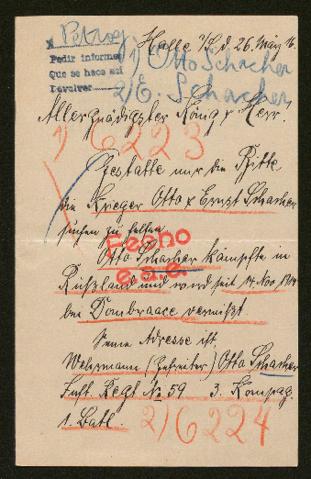 Petrog.
Halle ª/S. d. 26. März 16.
Pedir informes
Que se haga así
Devolver
1) Otto Schacher
2) E. Schacher
Allergnädigster König & Herr.
1) 6223
Gestatte mir die Bitte
die Krieger Otto & Ernst Schacher
suchen zu helfen
Fecho
Otto Schacher kämpfte in
Rußland und wird seit 14. Nov. 1914
bei Dombraace vermißt.
Seine Adresse ist.
Wehrmann (Gefreiter) Otto Schacher
Inft. Regt No 59 3. Kompag.
1. Batl. 2) 6224